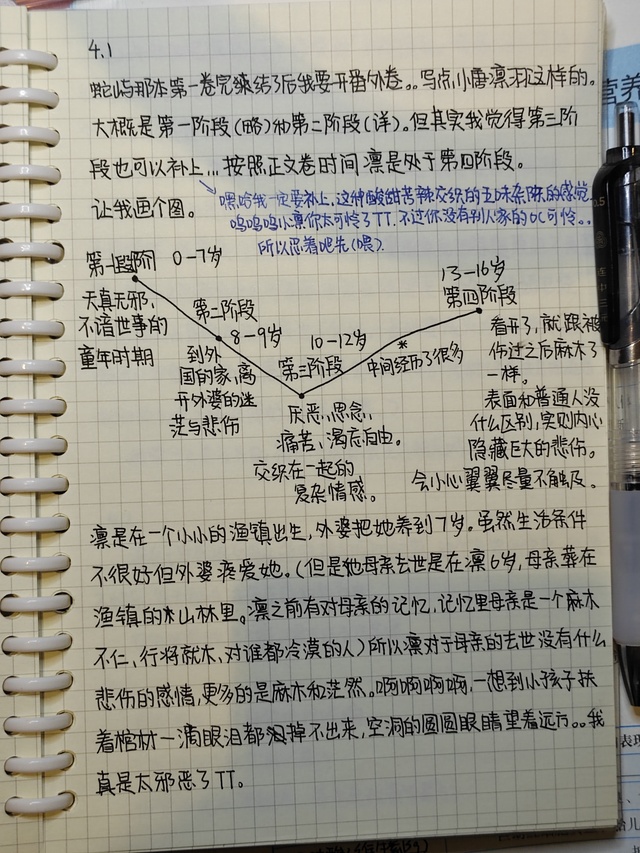 4.1
蛇屿那本第一卷完续结了后我要开番外卷。。写点小唐凛羽这样的。
大概是第一阶段(略)和第二阶段(详)。但其实我觉得第三阶
段也可以补上...按照正文卷时间 凛是处于第四阶段。
嘿哈我一定要补上,这种酸甜苦辣交织的五味杂陈的感觉
让我画个图。
呜呜呜小凛你太可怜了TT.不过你没有别人家的OC可怜。。
所以忍着吧先(喂).
第一阶段 0-7岁
天真无邪、
不谙世事的
童年时期
第二阶段
8-9岁
到外
国的家,离
开外婆的迷
茫与悲伤
10-12岁
第三阶段
厌恶,思念,
痛苦、渴望自由。
交织在一起的
复杂情感。
*
中间经历了很多
13-16岁
第四阶段
看开了,就跟被
伤过之后麻木了
一样。
表面和普通人没
什么区别,实则内心
隐藏巨大的悲伤。
会小心翼翼尽量不触及。
凛是在一个小小的渔镇出生,外婆把她养到7岁。虽然生活条件
不很好但外婆疼爱她。(但是他母亲去世是在凛6岁,母亲葬在
渔镇的山林里。凛之前有对母亲的记忆,记忆里母亲是一个麻木
不仁,行将就木,对谁都冷漠的人)所以凛对于母亲的去世没有什么
悲伤的感情,更多的是麻木和茫然。啊啊啊啊,一想到小孩子扶
着棺材一滴眼泪都掉不出来,空洞的圆圆眼睛望着远方。。我
真是太邪恶了TT。
营养
0.5